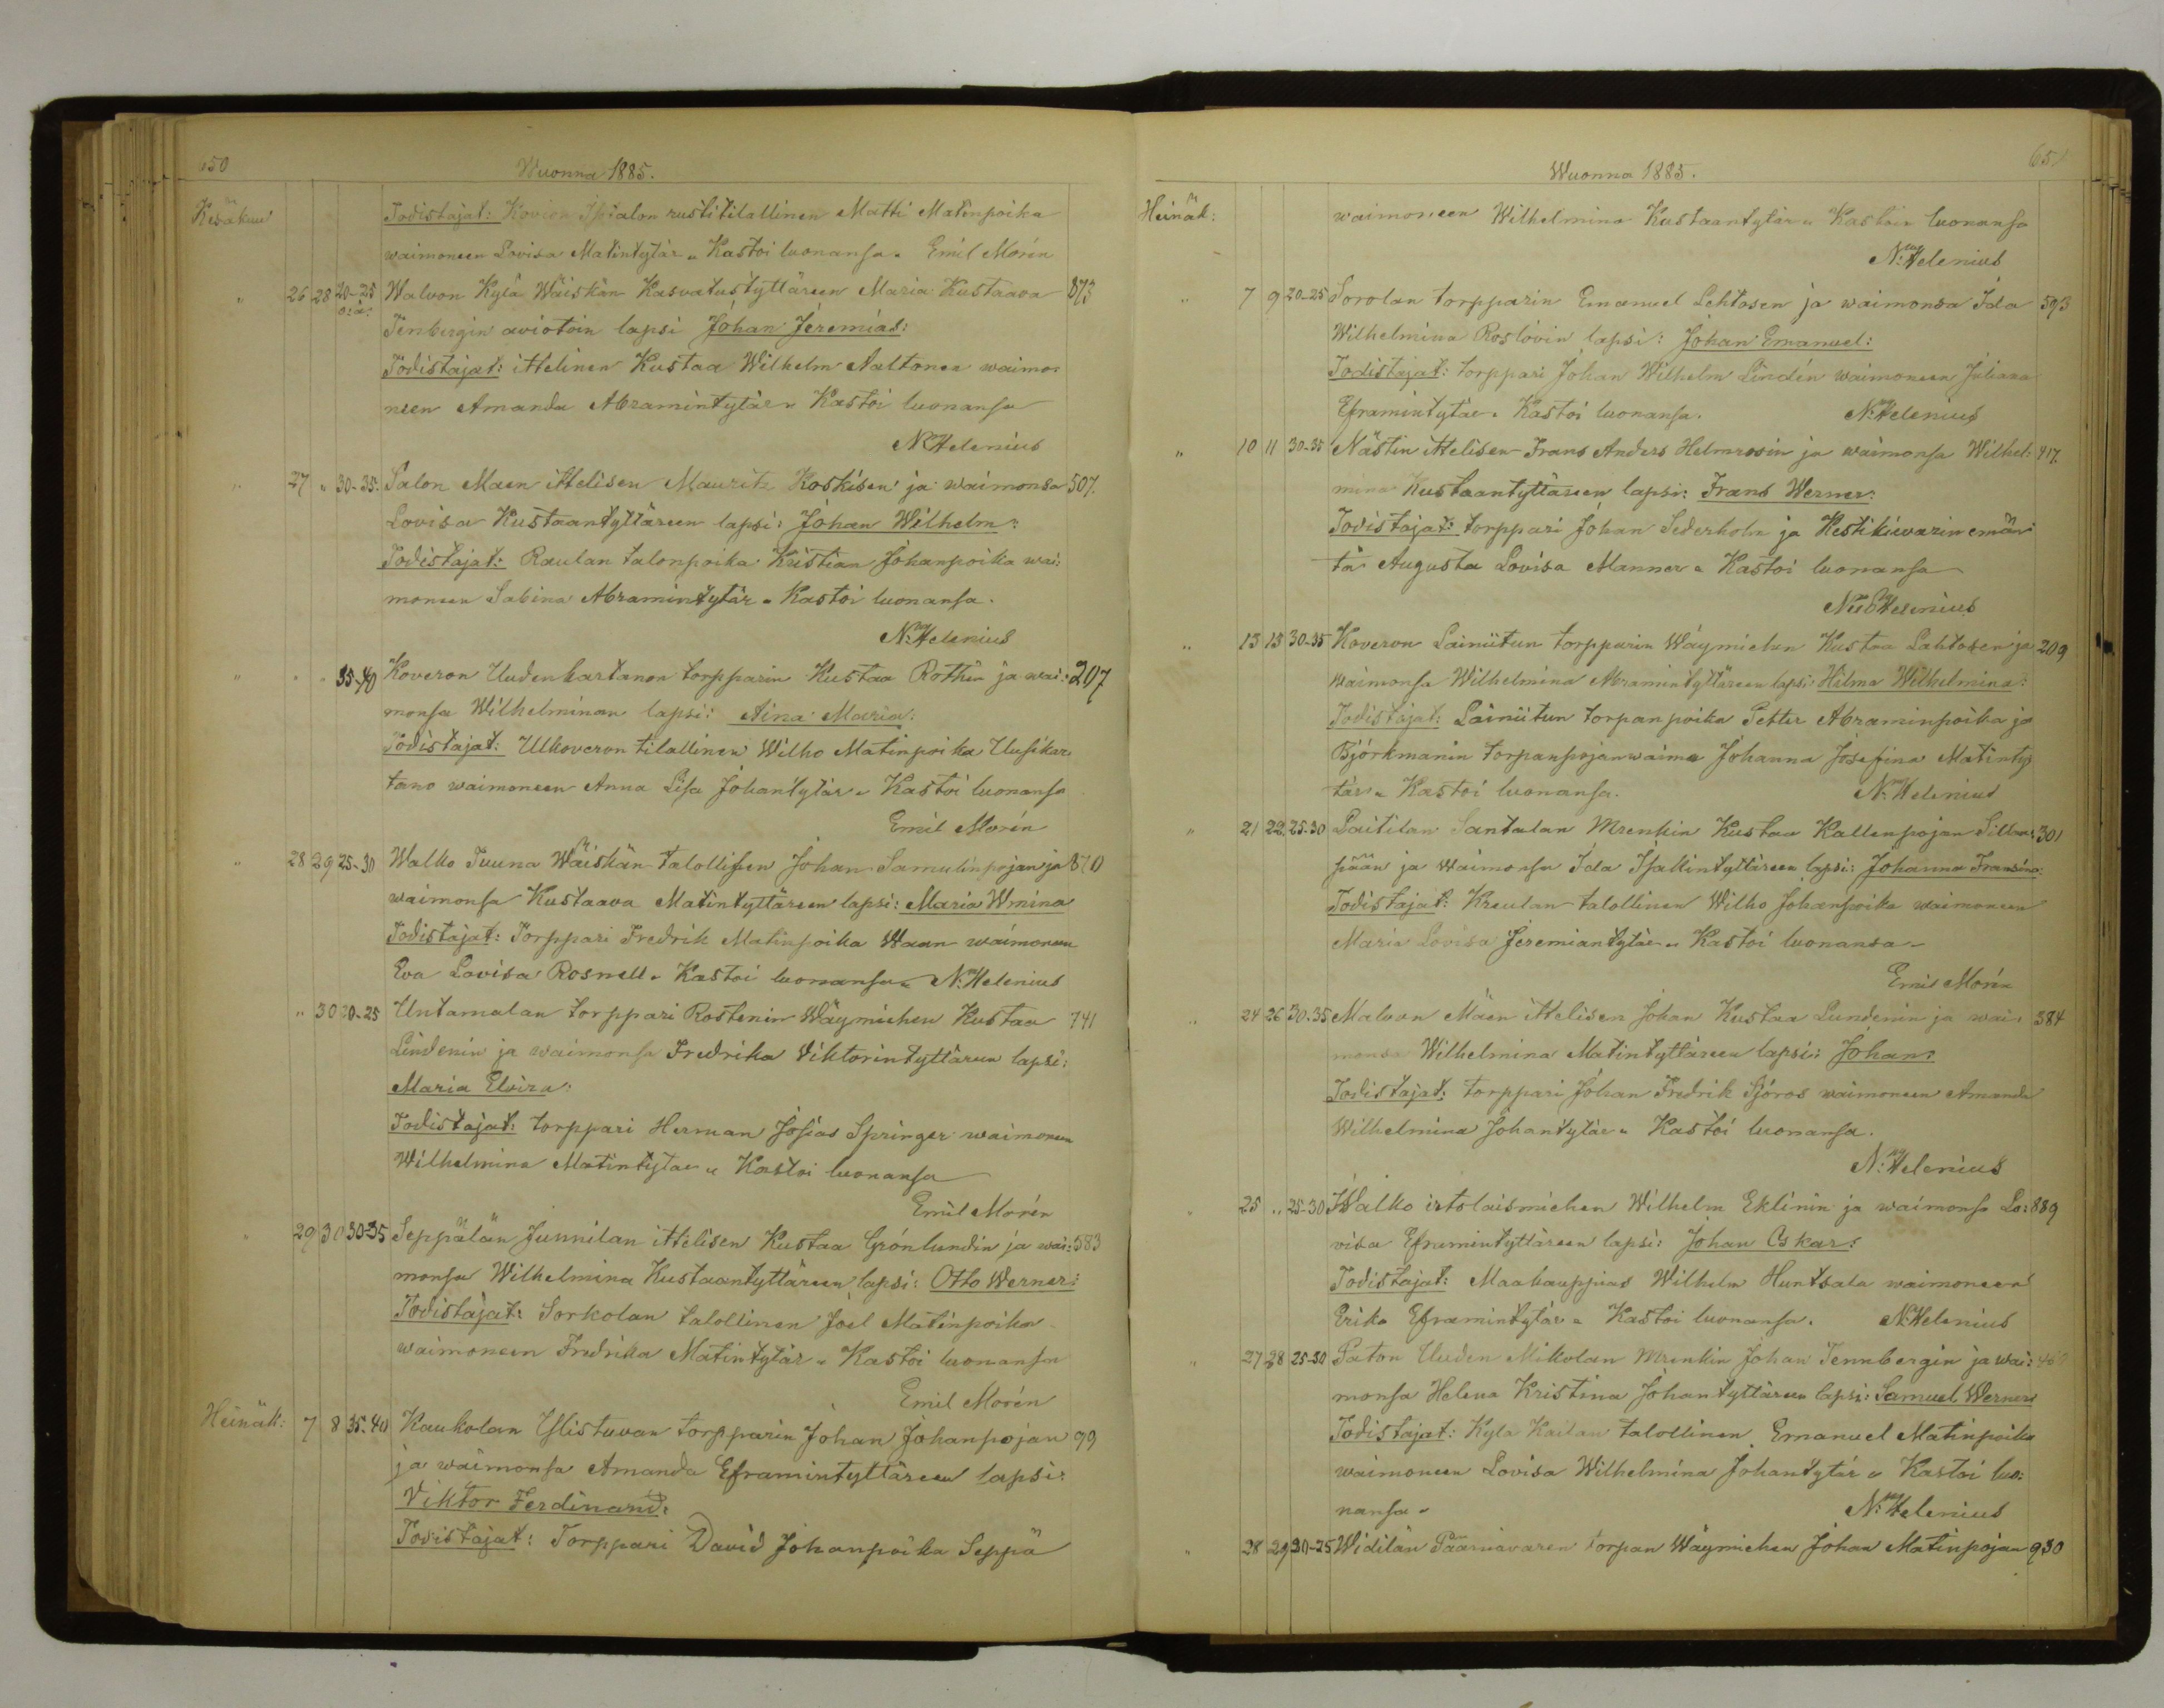 650
Wuonna 1885.
Kesäkuu Todistajat: rustitilallinen Matti Matinpoika
waimoneen Lovisa Matintytär „ Kastoi luonansa „ Emil Morén
„ 26 28 20-25 Walvon Kylä Wäiskän Kasvatustyttäreen Maria Kustaava 873
Tenbergin aviotoin lapsi Johan Jeremias:
Todistajat: ittelinen Kustaa Wilhelm Aaltonen waimo:
neen Amanda Abramintytär „ Kastoi luonansa
N. Helenius
„ 27 „ 30-35 Salon Maen ittelisen Mauritz Koskisen ja waimonsa 507.
Lovisa Kustaantyttäreen lapsi: Johan Wilhelm:
Todistajat: Raulan talonpoika Kristian Johanpoika wai:
moneen Sabina Abramintytär „ Kastoi luonansa.
N. Helenius
„ „ „ 35-40 Koveron Uudenkartanon torpparin Kustaa Rothin ja wai: 207
monsa Wilhelminan lapsi: Aina Maria:
Todistajat: Ulkoveron tilallinen Wilho Matinpoika Uusikar:
tano waimoneen Anna Lisa Johantytär „ Kastoi luonansa
Emil Morén
„ 28 29 25-30 Walko Juuna Wäiskän talollisen Johan Samulinpojan ja 870
waimonsa Kustaava Matintyttäreen lapsi: Maria Wmina
Todistajat: Torppari Fredrik Matinpoika Waan waimoneen
Eva Lovisa Rosnell „ Kastoi luonansa „ N. Helenius
„ 30 20-25 Untamalan torppari Rostenin Wäymiehen Kustaa 741
Lindenin ja waimonsa Fredrika Viktorintyttäreen lapsi:
Maria Elvira:
Todistajat: torppari Herman Josias Springer waimoneen
Wilhelmina Matintytär „ Kastoi luonansa
Emil Morén
„ 29 30 30-35 Seppälän Junnilan ittelisen Kustaa Grönlundin ja wai: 583
monsa Wilhelmina Kustaantyttäreen lapsi: Otto Werner:
Todistajat: Sorkolan talollinen Joel Matinpoika
waimoneen Fredrika Matintytär „ Kastoi luonansa
Emil Morén
Heinäk: 7 8 35-40 Kaukolan Ylistuvan torpparin Johan Johanpojan 99
ja waimonsa Amanda Eframintyttäreen lapsi:
Viktor Ferdinand:
Todistajat: Torppari David Johanpoika Seppä
651
Wuonna 1885.
Heinäk: waimoneen Wilhelmina Kustaantytär „ Kastoi luonansa
N. Helenius
„ 7 9 20-25 Sorolan torpparin Emanuel Lehtosen ja waimonsa Ida 593
Wilhelmina Roslövin lapsi: Johan Emanuel:
Todistajat: torppari Johan Wilhelm Lindén waimoneen Juliana
Eframintytär „ Kastoi luonansa. N. Helenius
„ 10 11 30-35 Nästin ittelisen Frans Anders Helmrosin ja waimonsa Wilhel: 417.
mina Kustaantyttäreen lapsi: Frans Werner:
Todistajat: torppari Johan Sederholm ja Kestikievarin emän:
tä Augusta Lovisa Manner „ Kastoi luonansa
Helenius
„ 13 13 30-35 Koveron Lainiitun torpparin Wäymiehen Kustaa Lahtosen ja 209
waimonsa Wilhelmina Abramintyttäreen lapsi: Hilma Wilhelmina:
Todistajat: Lainiitun torpan poika Petter Abraminpoika ja
Björkmanin torpanpojanwaimo Johanna Josefina Matinty
tär „ Kastoi luonansa. N. Helenius
„ 21 22 25-30 Laitilan Santalan Mrenkin Kustaa Kallenpojan Sillan: 301
pään ja waimonsa Ida Isakintyttäreen lapsi: Johanna Fransina:
Todistajat: Kreulan talollinen Wilho Johanpoika waimoneen
Maria Lovisa Jeremiantytär „ Kastoi luonansa
Emil Morén
„ 24 26 30-35 Malvon Mäen ittelisen Johan Kustaa Lundenin ja wai: 384
monsa Wilhelmina Matintyttäreen lapsi: Johan:
Todistajat: torppari Johan Fredrik Sjöros waimoneen Amanda
Wilhelmina Johantytär „ Kastoi luonansa.
N. Helenius
„ 25 „ 25-30 Walko irtolaismiehen Wilhelm Eklinin ja waimonsa Lo: 889
visa Eframintyttäreen lapsi: Johan Oskar:
Todistajat: Maakauppias Wilhelm Huntsala waimoneen
Erika Eframintytär „ Kastoi luonansa. N. Helenius
„ 27 28 25-30 Paton Uuden Mikolan Mrenkin Johan Tennbergin ja wai:
monsa Helena Kristina Johantyttäreen lapsi: Samuel Werner
Todistajat: Kylä Kailan talollinen Emanuel Matinpoika
waimoneen Lovisa Wilhelmina Johantytär „ Kastoi luo:
nansa „ N. Helenius
„ 28 29 Widilän torpan Wäymiehen Johan Matinpojan 930